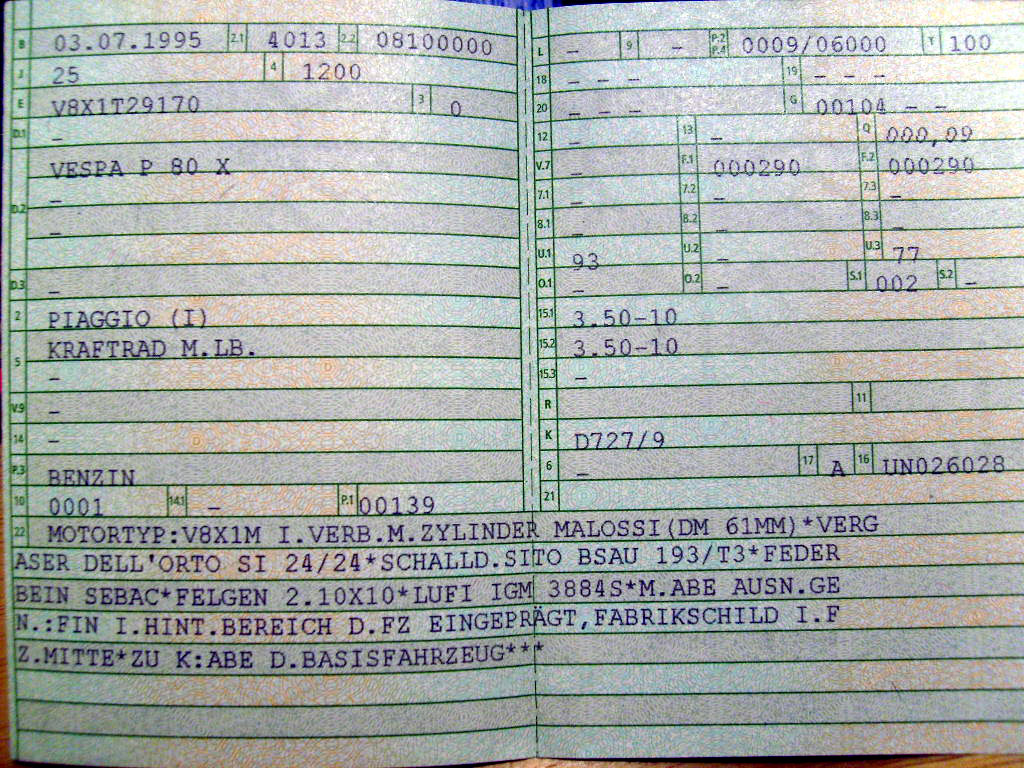 B 03.07.1995 2.1 4013 2.2 08100000
J 25 4 1200
E V8X1T29170 3 0
D.1 –
VESPA P 80 X
–
D.2
–
D.3 –
2 PIAGGIO (I)
KRAFTRAD M.LB.
5
–
V.9 –
14 –
P.3 BENZIN
10 0001 14.1 – P.1 00139
L – 9 – P.2 P.4 0009/06000 T 100
18 – – – 19 – – –
20 – – – G 00104 – –
12 – 13 – Q 000,09
V.7 – F.1 000290 F.2 000290
7.1 – 7.2 – 7.3 –
8.1 – 8.2 – 8.3 –
U.1 93 U.2 – U.3 77
O.1 – O.2 – S.1 002 S.2 –
15.1 3.50-10
15.2 3.50-10
15.3 –
R 11
K D727/9
6 – 17 A 16 UN026028
21
22 MOTORTYP:V8X1M I.VERB.M.ZYLINDER MALOSSI(DM 61MM)*VERG
ASER DELL'ORTO SI 24/24*SCHALLD.SITO BSAU 193/T3*FEDER
BEIN SEBAC*FELGEN 2.10X10*LUFI IGM 3884S*M.ABE AUSN.GE
N.:FIN I.HINT.BEREICH D.FZ EINGEPRÄGT,FABRIKSCHILD I.F
Z.MITTE*ZU K:ABE D.BASISFAHRZEUG***